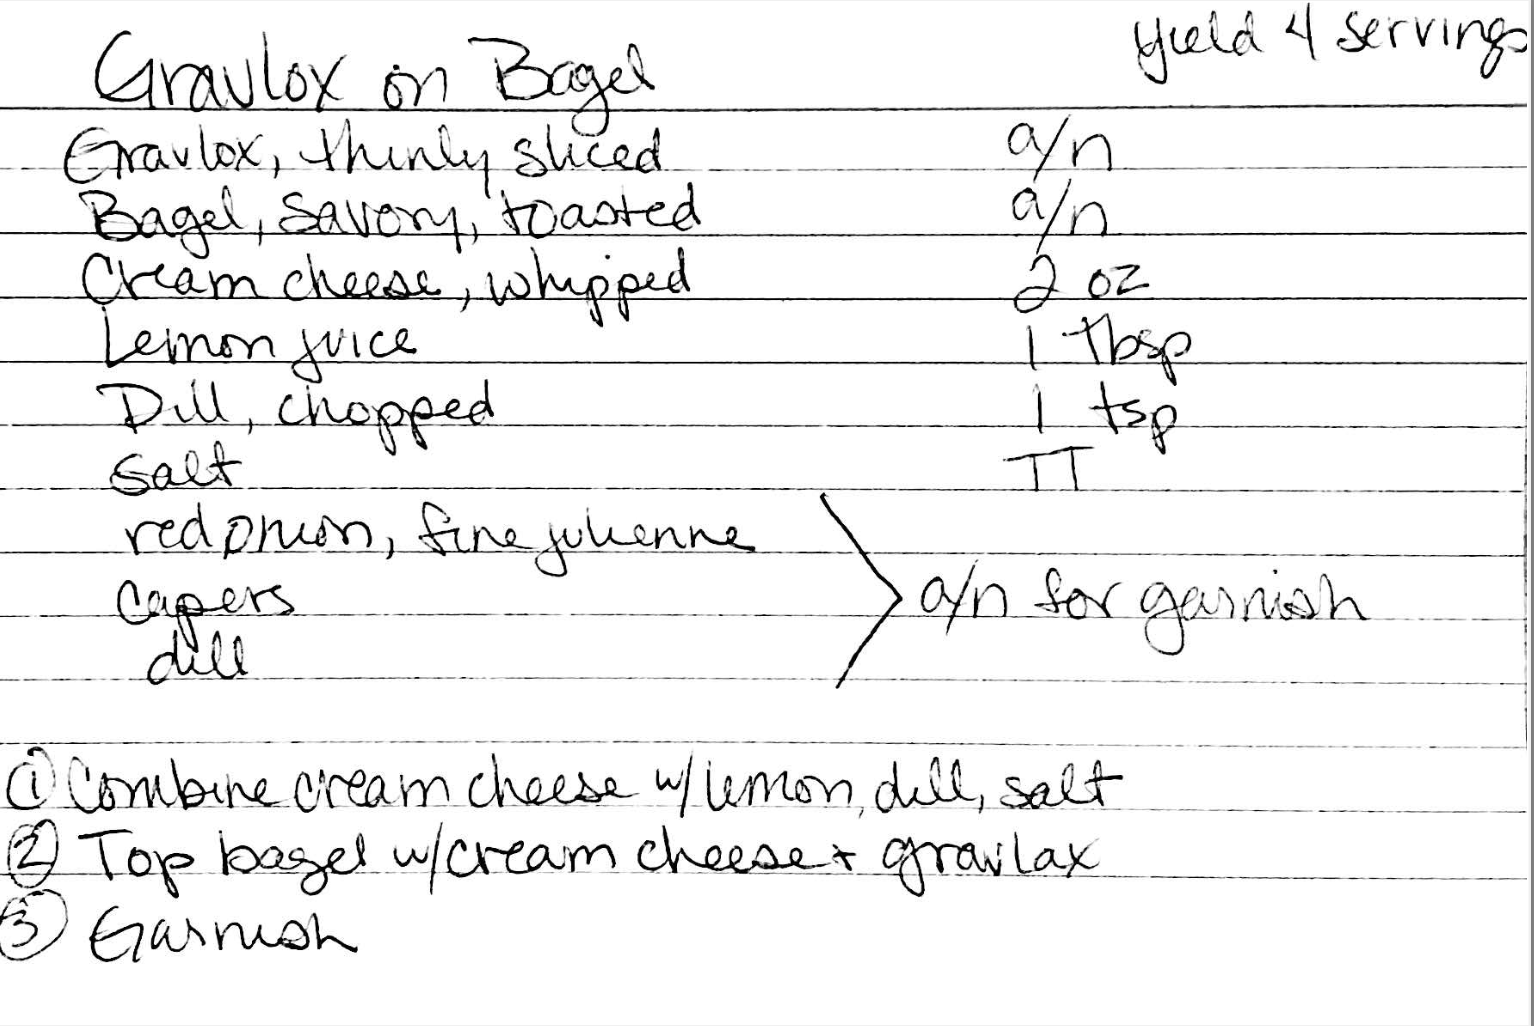 yield 4 servings
Gravlox on Bagel
Gravlox, thinly sliced a/n
Bagel, savory, toasted a/n
Cream cheese, whipped 2 oz
Lemon juice 1 Tbsp
Dill, chopped 1 tsp
Salt TT
red onion, fine julienne
capers
dill
a/n for garnish
① Combine cream cheese w/ lemon, dill, salt
② Top bagel w/ cream cheese + gravlax
③ Garnish